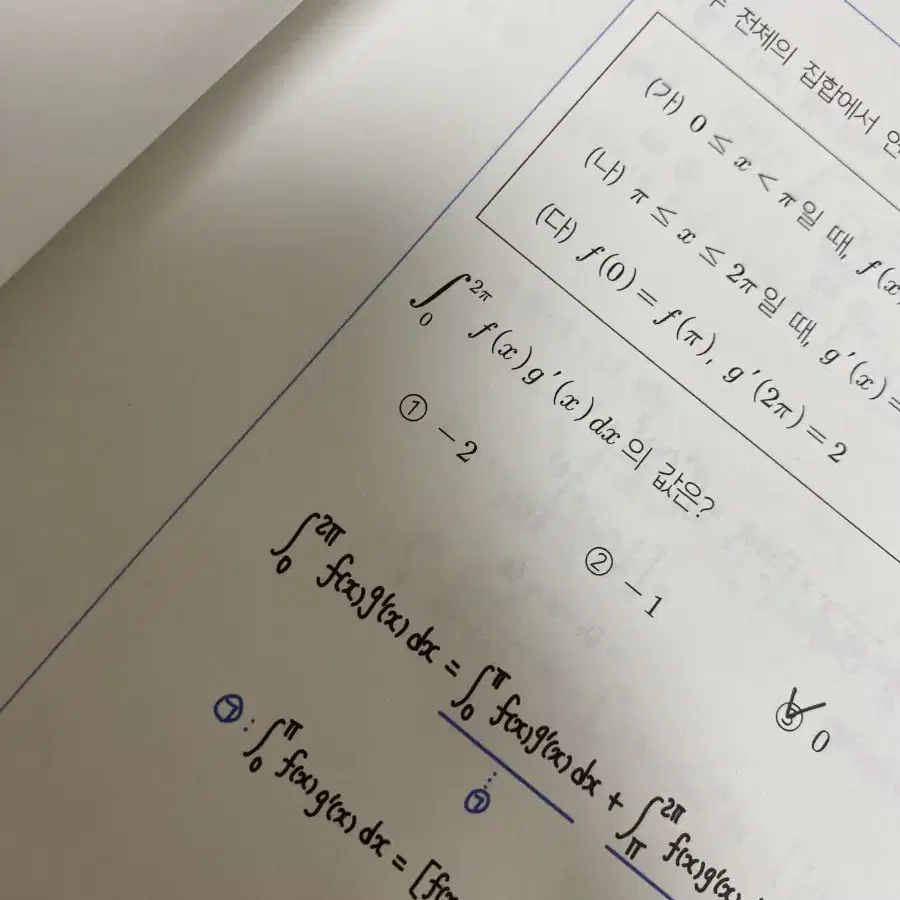 전체의 집합에서
(가) 0 ≤ x < π일 때, f(x)
(나) π ≤ x ≤ 2π일 때, g′(x) =
(다) f(0) = f(π), g′(2π) = 2
∫₀^{2π} f(x)g′(x)dx의 값은?
① −2
② −1
③ 0
∫₀^{2π} f(x)g′(x)dx = ∫₀^{π} f(x)g′(x)dx + ∫_{π}^{2π} f(x)g′(x)
㉠
㉠: ∫₀^{π} f(x)g′(x)dx = [f(x)